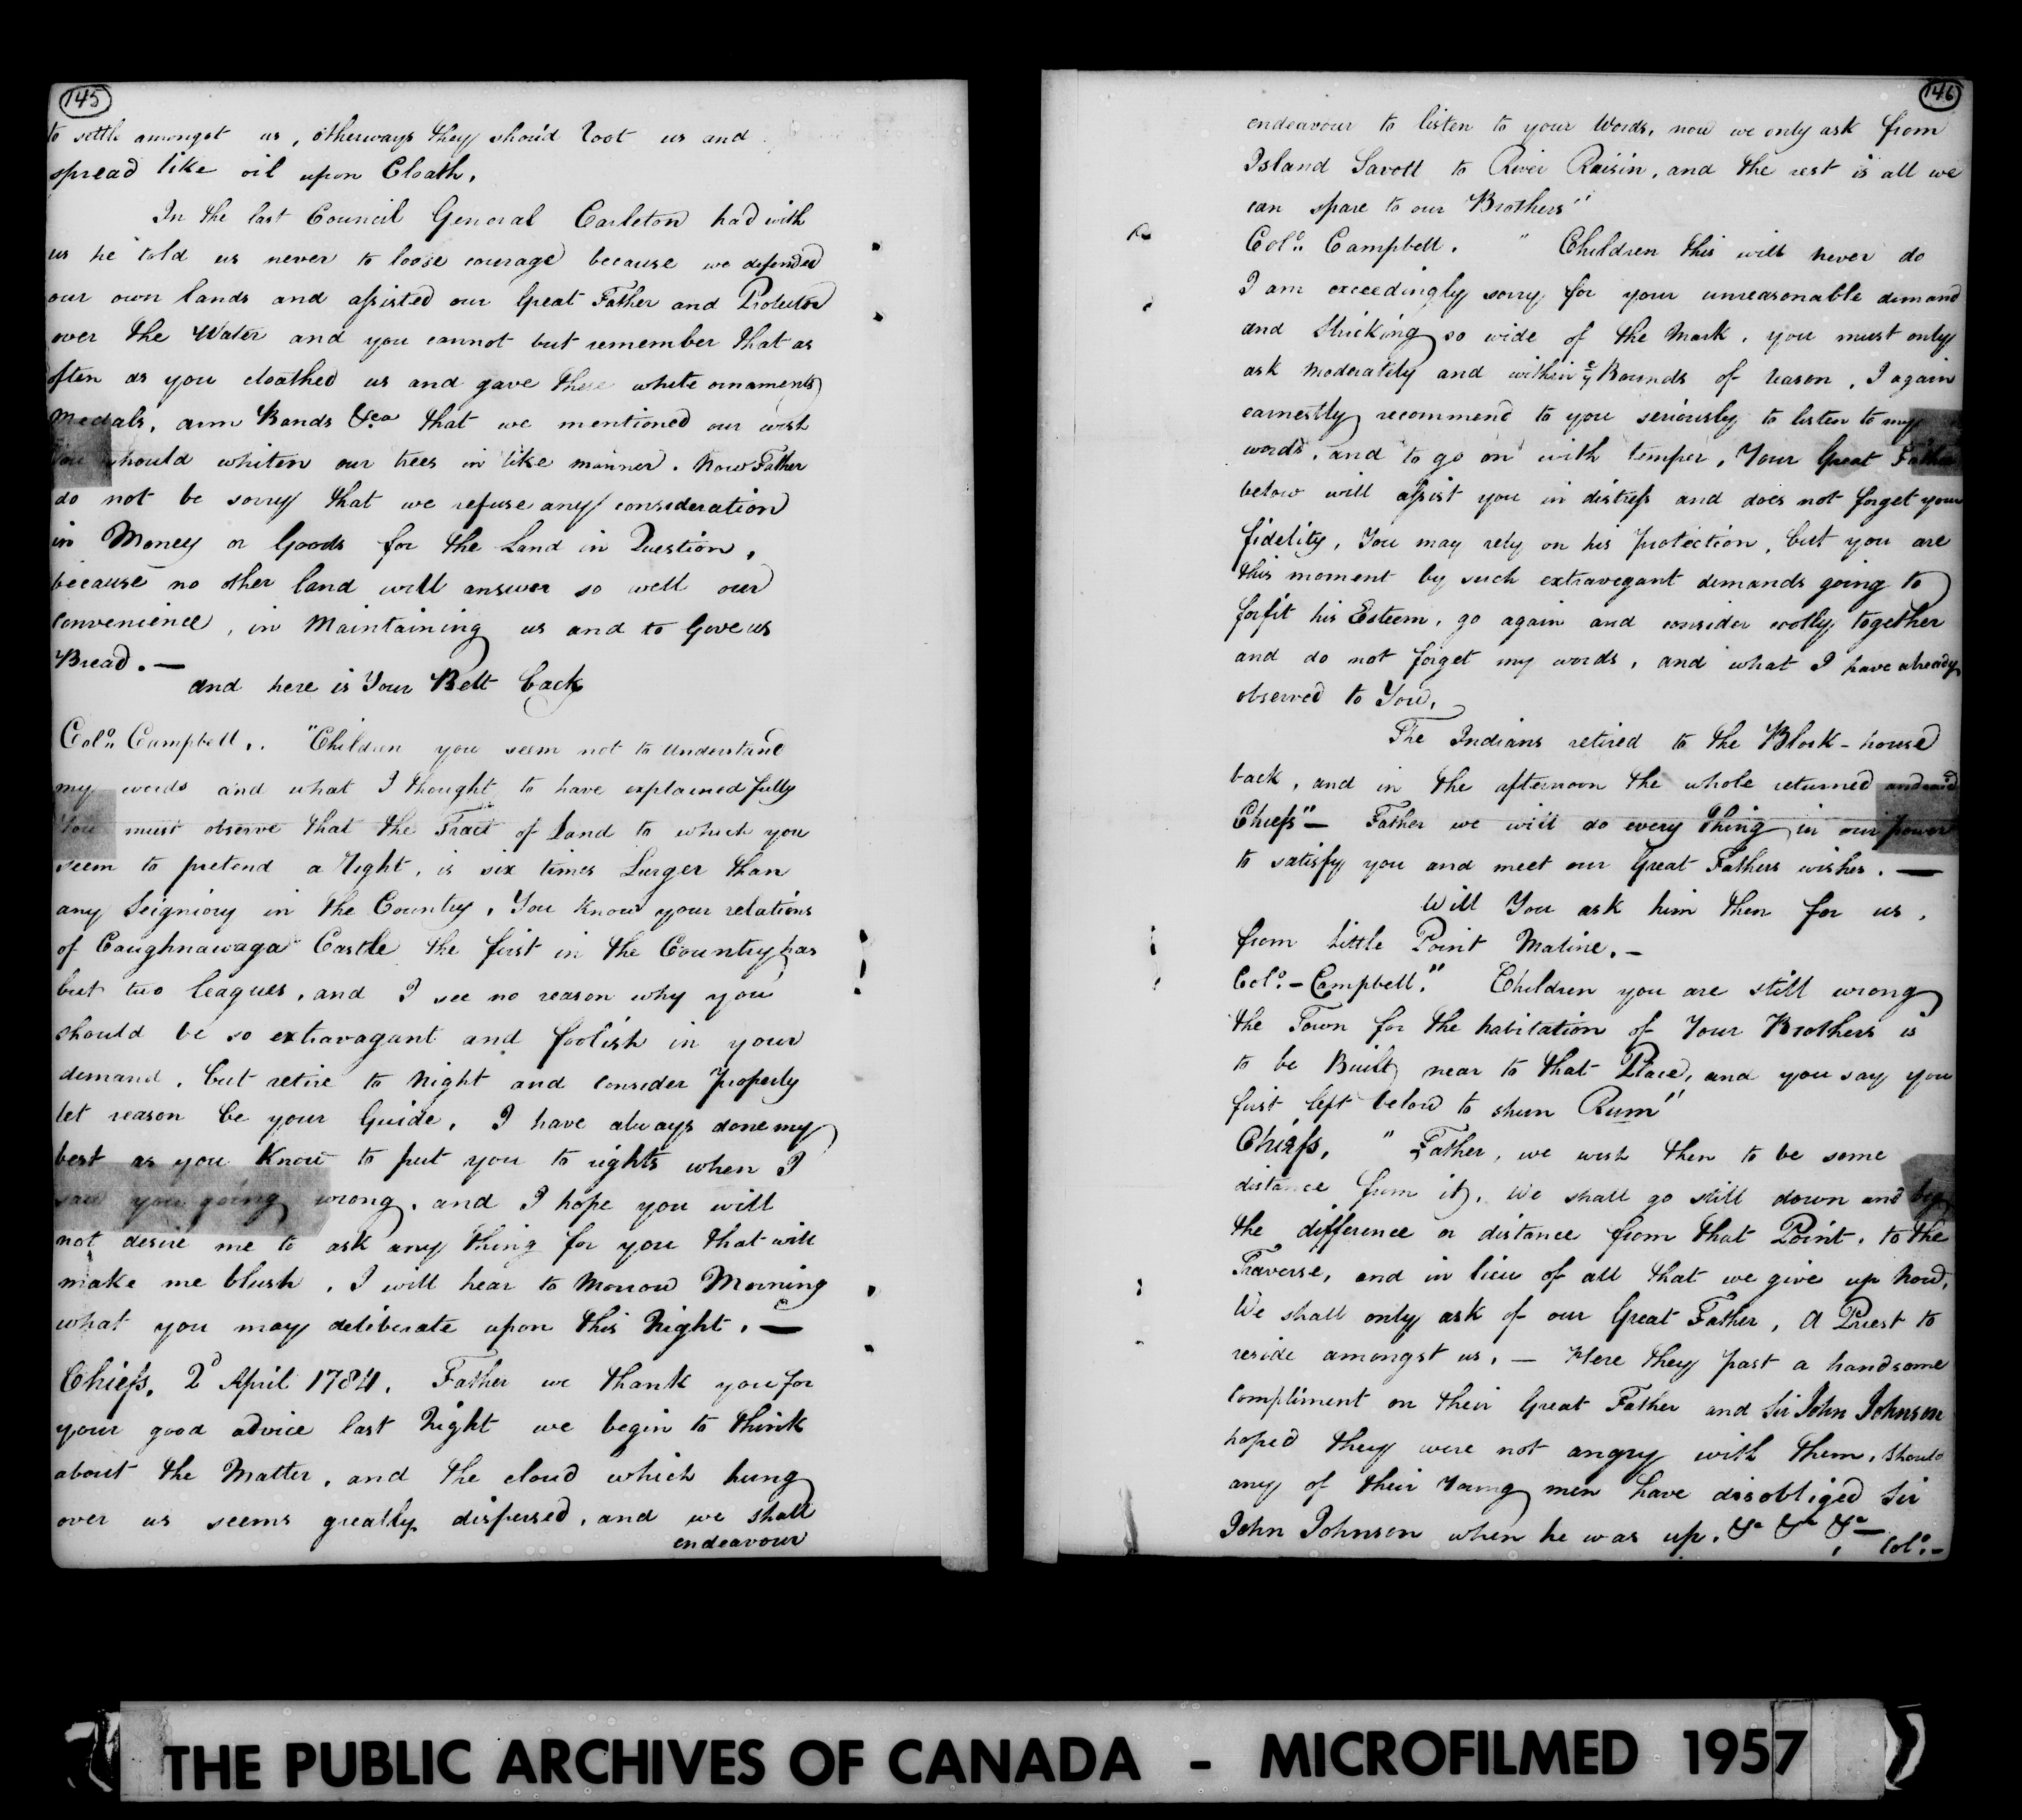 145
to settle amongst us, otherways they should root us and
spread like oil upon Cloath,
In the last Council General Carleton had with
us he told us never to loose courage because we defended
our own lands and assisted our Great Father and Protector
over the Water and you cannot but remember that as
often as you cloathed us and gave these white ornaments
Medals, arm Bands &ca that we mentioned our wish
You should whiten our trees in like manner. Now Father
do not be sorry that we refuse any consideration
in Money or Goods for the Land in Question,
because no other land will answer so well our
Convenience, in Maintaining us and to Give us
Bread. —
and here is Your Belt back
Colo. Campbell,. "Children you seem not to understand
my words and what I thought to have explained fully
You must observe that the Tract of Land to which you
seem to pretend a Right, is six times Larger than
any Seigniory in the Country, You know your relations
of Caughnawaga Castle the first in the Country has
but two leagues, and I see no reason why you
should be so extravagant and foolish in your
demand, but retire to Night and consider properly
let reason be your Guide, I have always done my
best as you Know to put you to rights when I
saw you going wrong, and I hope you will
not desire me to ask any thing for you that will
make me blush, I will hear to Morrow Morning
what you may deliberate upon this Night, —
Chiefs, 2d April 1784, Father we thank you for
your good advice last Night we begin to think
about the Matter, and the cloud which hung
over us seems greatly dispersed, and we shall
endeavour
146
endeavour to listen to your Words, now we only ask from
Island Savoll to River Raisin, and the rest is all we
can spare to our Brothers"
Colo. Campbell. " Children this will never do
I am exceedingly sorry for your unreasonable demand
and Sticking so wide of the Mark, you must only
ask moderately and within ye Bounds of reason, I again
earnestly recommend to you seriously to listen to my
words, and to go on with temper, Your Great Father
below will assist you in distress and does not forget your
fidelity, You may rely on his protection, but you are
this moment by such extravegant demands going to
forfit his Esteem, go again and consider coolly together
and do not forget my words, and what I have already
observed to You,
The Indians retired to the Block-house
back, and in the afternoon the whole returned and said
Chiefs" — Father we will do every thing in our power
to satisfy you and meet our Great Fathers wishes. —
Will You ask him then for us,
from Little Point Maline, —
Colo. — Campbell." Children you are still wrong
the Town for the habitation of Your Brothers is
to be Built near to that Place, and you say you
first left below to shun Rum"
Chiefs, " Father, we wish then to be some
distance from it, We shall go still down and beg
the difference or distance from that Point, to the
Traverse, and in lieu of all that we give up Now,
We shall only ask of our Great Father, A Priest to
reside amongst us, — Here they past a handsome
compliment on their Great Father and Sir John Johnson
hoped they were not angry with them, should
any of their Young men have disobliged Sir
John Johnson when he was up. &c &c &c —
Colo. —
THE PUBLIC ARCHIVES OF CANADA - MICROFILMED 1957